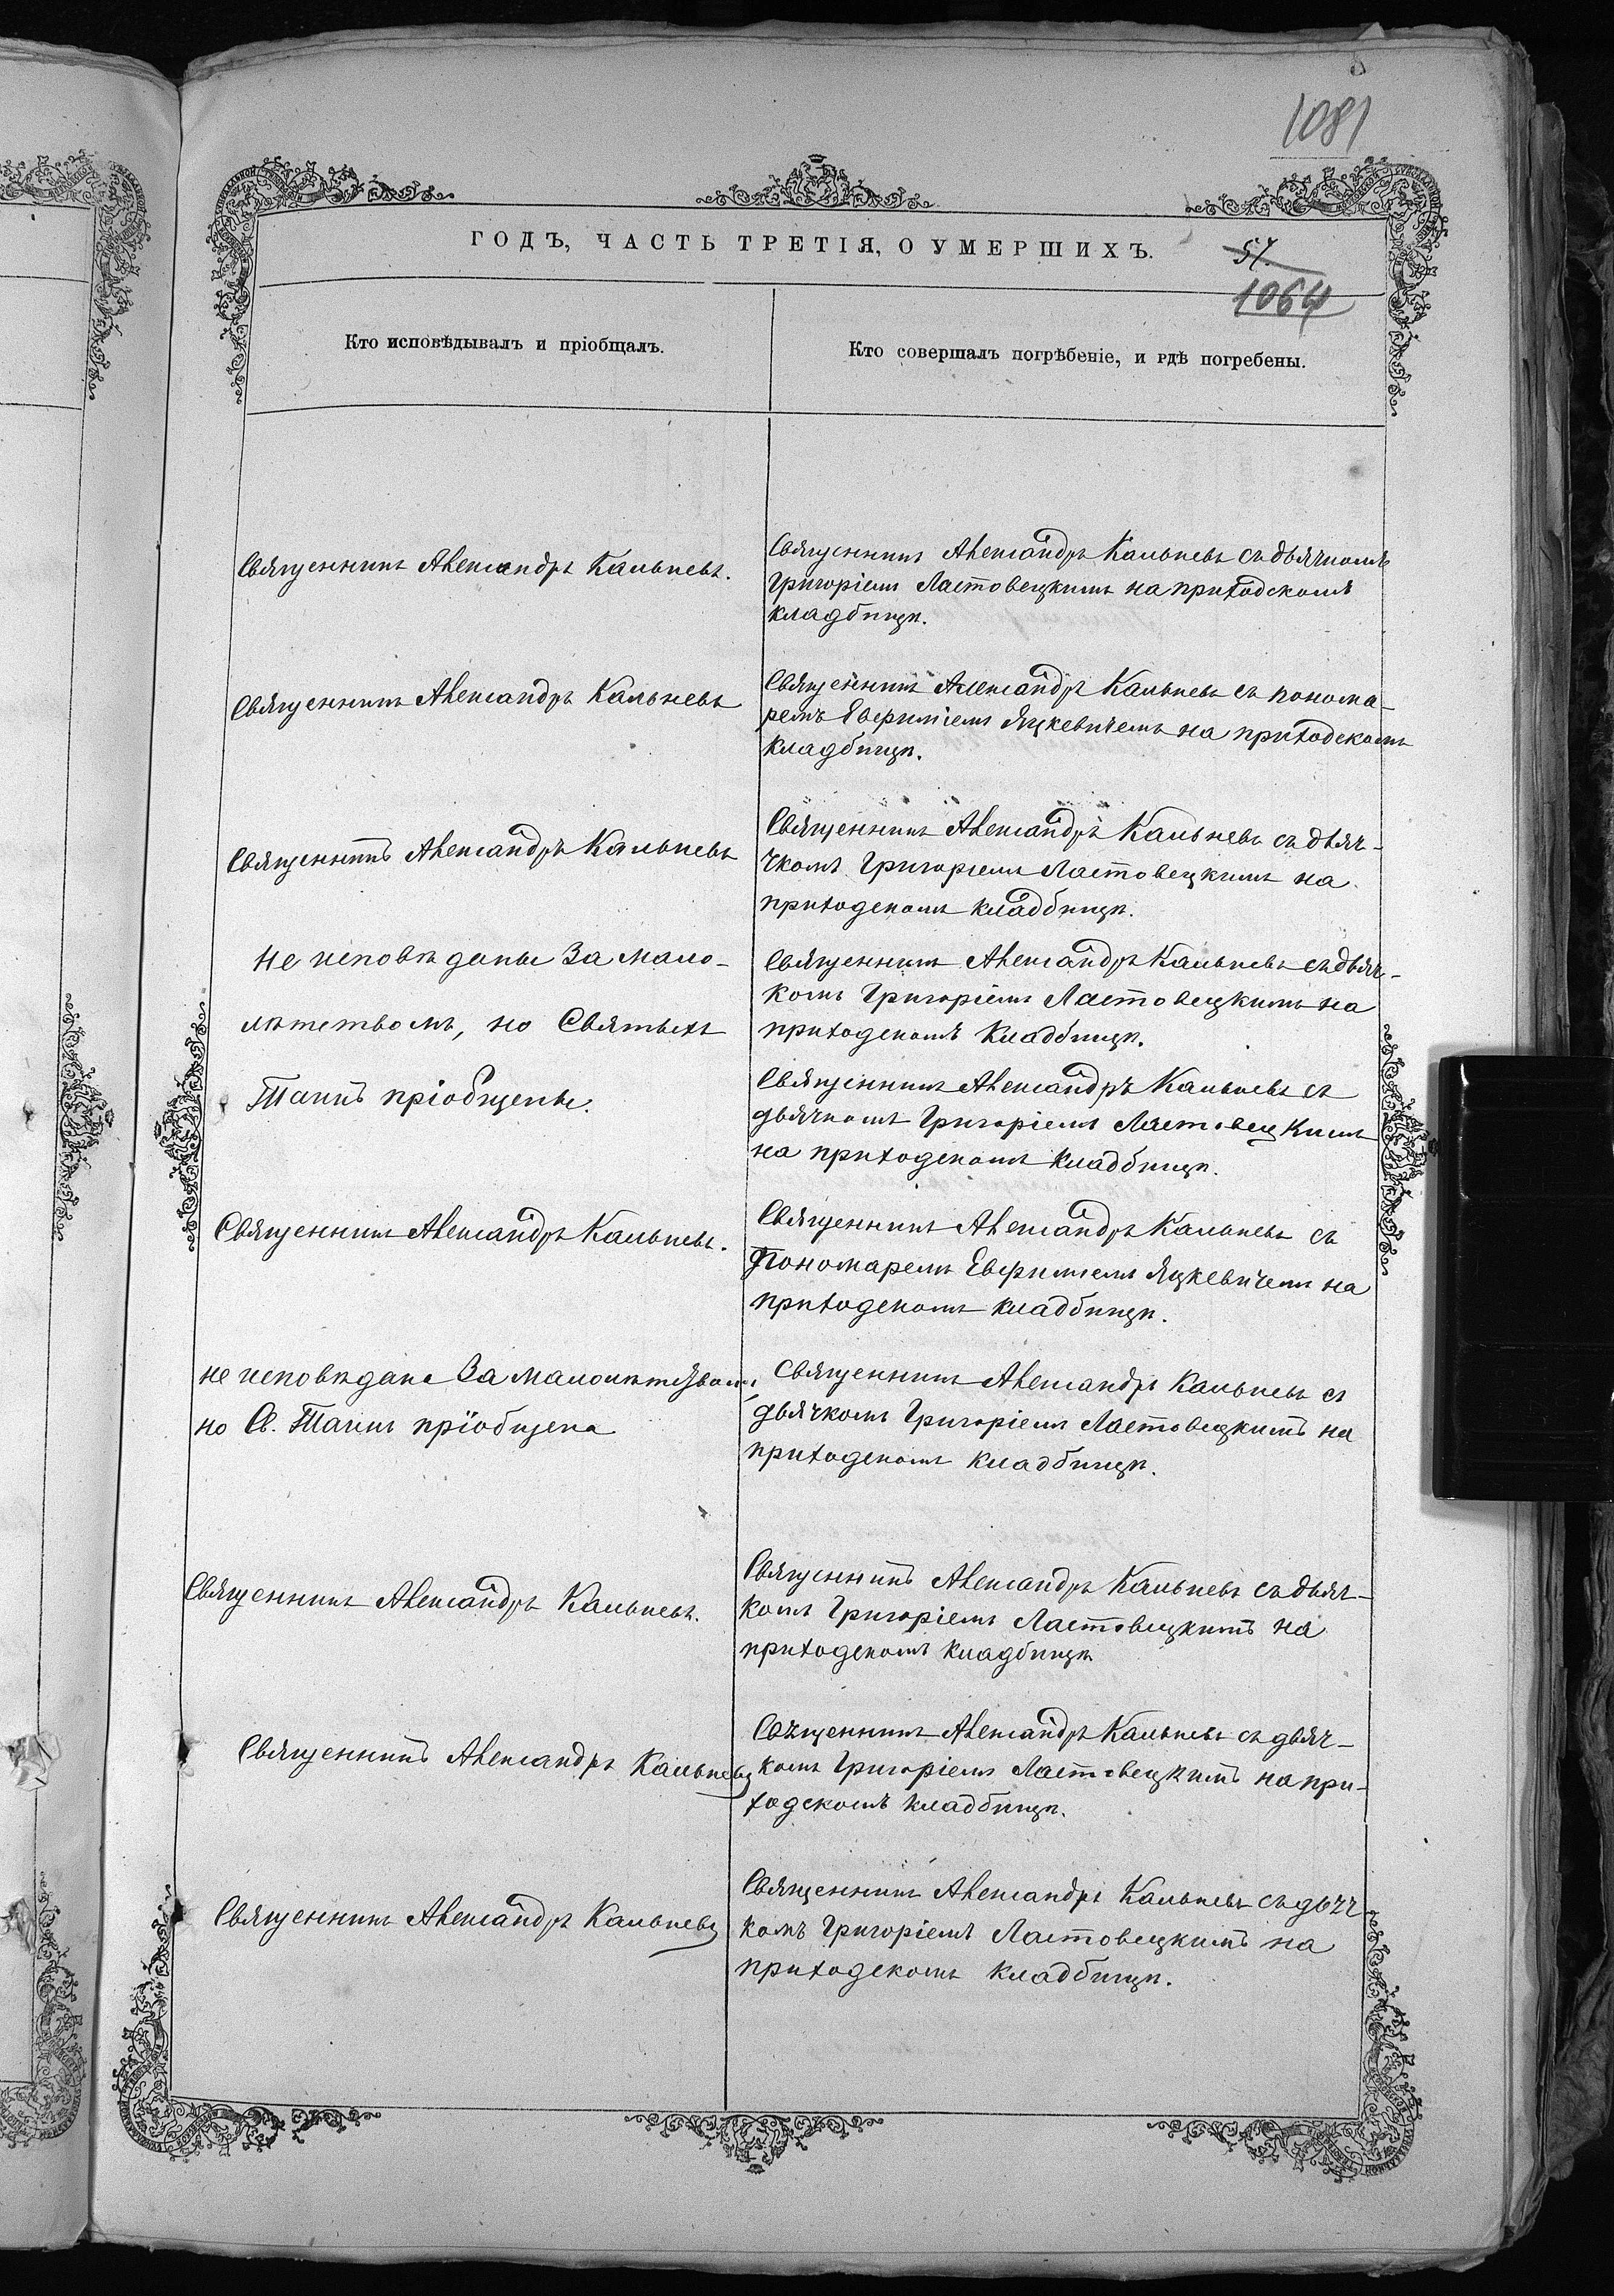 1081
ГОДЪ, ЧАСТЬ ТРЕТІЯ, О УМЕРШИХЪ.
57.
1064
Кто исповѣдывалъ и пріобщалъ.
Кто совершалъ погрѣбеніе, и гдѣ погребены.
Священникъ Александръ Кальневъ.
Священникъ Александръ Кальневъ съ дьячкомъ
Григоріемъ Ластовецкимъ на приходскомъ
кладбищѣ.
Священникъ Александръ Кальневъ
Священникъ Александръ Кальневъ съ понома-
ремъ Евфиміемъ Яцкевичемъ на приходскомъ
кладбищѣ.
Священникъ Александръ Кальневъ
Священникъ Александръ Кальневъ съ дьяч-
чкомъ Григоріемъ Ластовецкимъ на
приходскомъ кладбищѣ.
не исповѣданы за мало-
лѣтствомъ, но Святыхъ
Таинъ пріобщены.
Священникъ Александръ Кальневъ съ дьяч-
комъ Григоріемъ Ластовецкимъ на
приходскомъ кладбищѣ.
Священникъ Александръ Кальневъ съ
дьячкомъ Григоріемъ Ластовецкимъ
на приходскомъ кладбищѣ.
Священникъ Александръ Кальневъ.
Священникъ Александръ Кальневъ съ
Пономаремъ Евфиміемъ Яцкевичемъ на
приходскомъ кладбищѣ.
не исповѣдана за малолѣтствомъ,
но Св. Таинъ пріобщена
Священникъ Александръ Кальневъ съ
дьячкомъ Григоріемъ Ластовецкимъ на
приходскомъ кладбищѣ.
Священникъ Александръ Кальневъ.
Священникъ Александръ Кальневъ съ дьяч-
комъ Григоріемъ Ластовецкимъ на
приходскомъ кладбищѣ
Священникъ Александръ Кальневъ
Священникъ Александръ Кальневъ съ дьяч-
комъ Григоріемъ Ластовецкимъ на при-
ходскомъ кладбищѣ.
Священникъ Александръ Кальневъ
Священникъ Александръ Кальневъ съ дьяч-
комъ Григоріемъ Ластовецкимъ на
приходскомъ кладбищѣ.